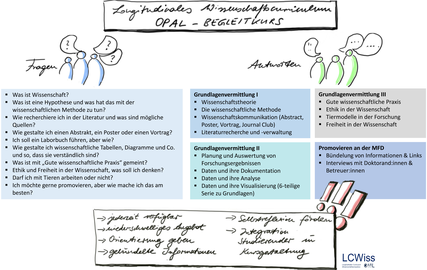 Longitudinales Wissenschaftscurriculum
OPAL - BEGLEITKURS
Fragen
? ? ?
Antworten
Was ist Wissenschaft?
Was ist eine Hypothese und was hat das mit der
wissenschaftlichen Methode zu tun?
Wie recherchiere ich in der Literatur und was sind mögliche
Quellen?
Wie gestalte ich einen Abstrakt, ein Poster oder einen Vortrag?
Ich soll ein Laborbuch führen, aber wie?
Wie gestalte ich wissenschaftliche Tabellen, Diagramme und Co.
und so, dass sie verständlich sind?
Was ist mit „Gute wissenschaftliche Praxis" gemeint?
Ethik und Freiheit in der Wissenschaft, was soll ich denken?
Darf ich mit Tieren arbeiten oder nicht?
Ich möchte gerne promovieren, aber wie mache ich das am
besten?
Grundlagenvermittlung I
Wissenschaftstheorie
Die wissenschaftliche Methode
Wissenschaftskommunikation (Abstract,
Poster, Vortrag, Journal Club)
Literaturrecherche und -verwaltung
Grundlagenvermittlung II
Planung und Auswertung von
Forschungsergebnissen
Daten und ihre Dokumentation
Daten und ihre Analyse
Daten und ihre Visualisierung (6-teilige
Serie zu Grundlagen)
Grundlagenvermittlung III
Gute wissenschaftliche Praxis
Ethik in der Wissenschaft
Tiermodelle in der Forschung
Freiheit in der Wissenschaft
Promovieren an der MFD
Bündelung von Informationen & Links
Interviews mit Doktorand:innen &
Betreuer:innen
→ jederzeit verfügbar
→ niederschwelliges Angebot
→ Orientierung geben
→ gebündelte Informationen
→ Selbstreflexion fördern
→ Integration
Studierender in
Kursgestaltung
!!!
LCWiss